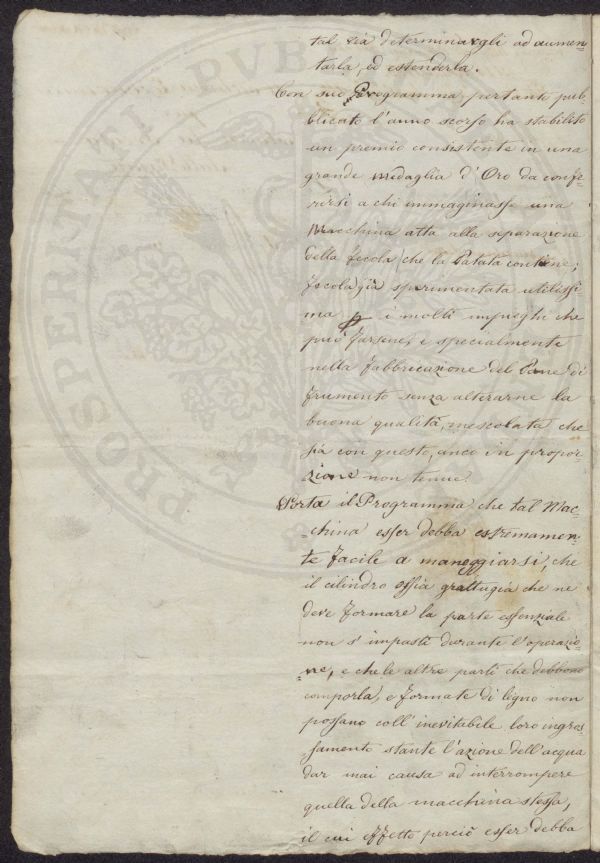 tal via determinargli ad aumen-
tarla, ed estenderla.
Con suo Programma pertanto pub-
blicato l'anno scorso ha stabilito
un premio consistente in una
grande Medaglia d'Oro da confe-
rirsi a chi immaginasse una
Macchina atta alla separazione
della Fecola, che la Patata contiene;
Fecola già sperimentata utilissi-
ma p i molti impieghi che
può farsene, e specialmente
nella fabbricazione del Pane di
frumento senza alterarne la
buona qualità, mescolata che
sia con questo, anco in propor-
zione non tenue.
Porta il Programma che tal Mac-
china esser debba estremamen-
te facile a maneggiarsi, che
il cilindro ossia grattugia che ne
deve formare la parte essenziale
non s'impasti durante l'operazio-
ne, e che le altre parti che debbono
comporla, e formate di legno non
possano coll'inevitabile loro ingros-
samento stante l'azione dell'acqua
dar mai causa ad interrompere
quella della macchina stessa,
il cui effetto perciò esser debba
PROSPERITATI PVBLICAE